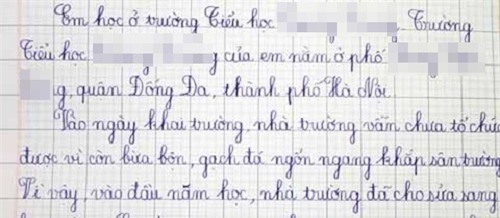 Em học ở trường Tiểu học . Trường
Tiểu học g của em nằm ở phố
g, quận Đống Đa, thành phố Hà Nội.
Vào ngày khai trường, nhà trường vẫn chưa tổ chức
được vì còn bừa bộn, gạch đá ngổn ngang khắp sân trường
Vì vậy, vào đầu năm học, nhà trường đã cho sửa sang